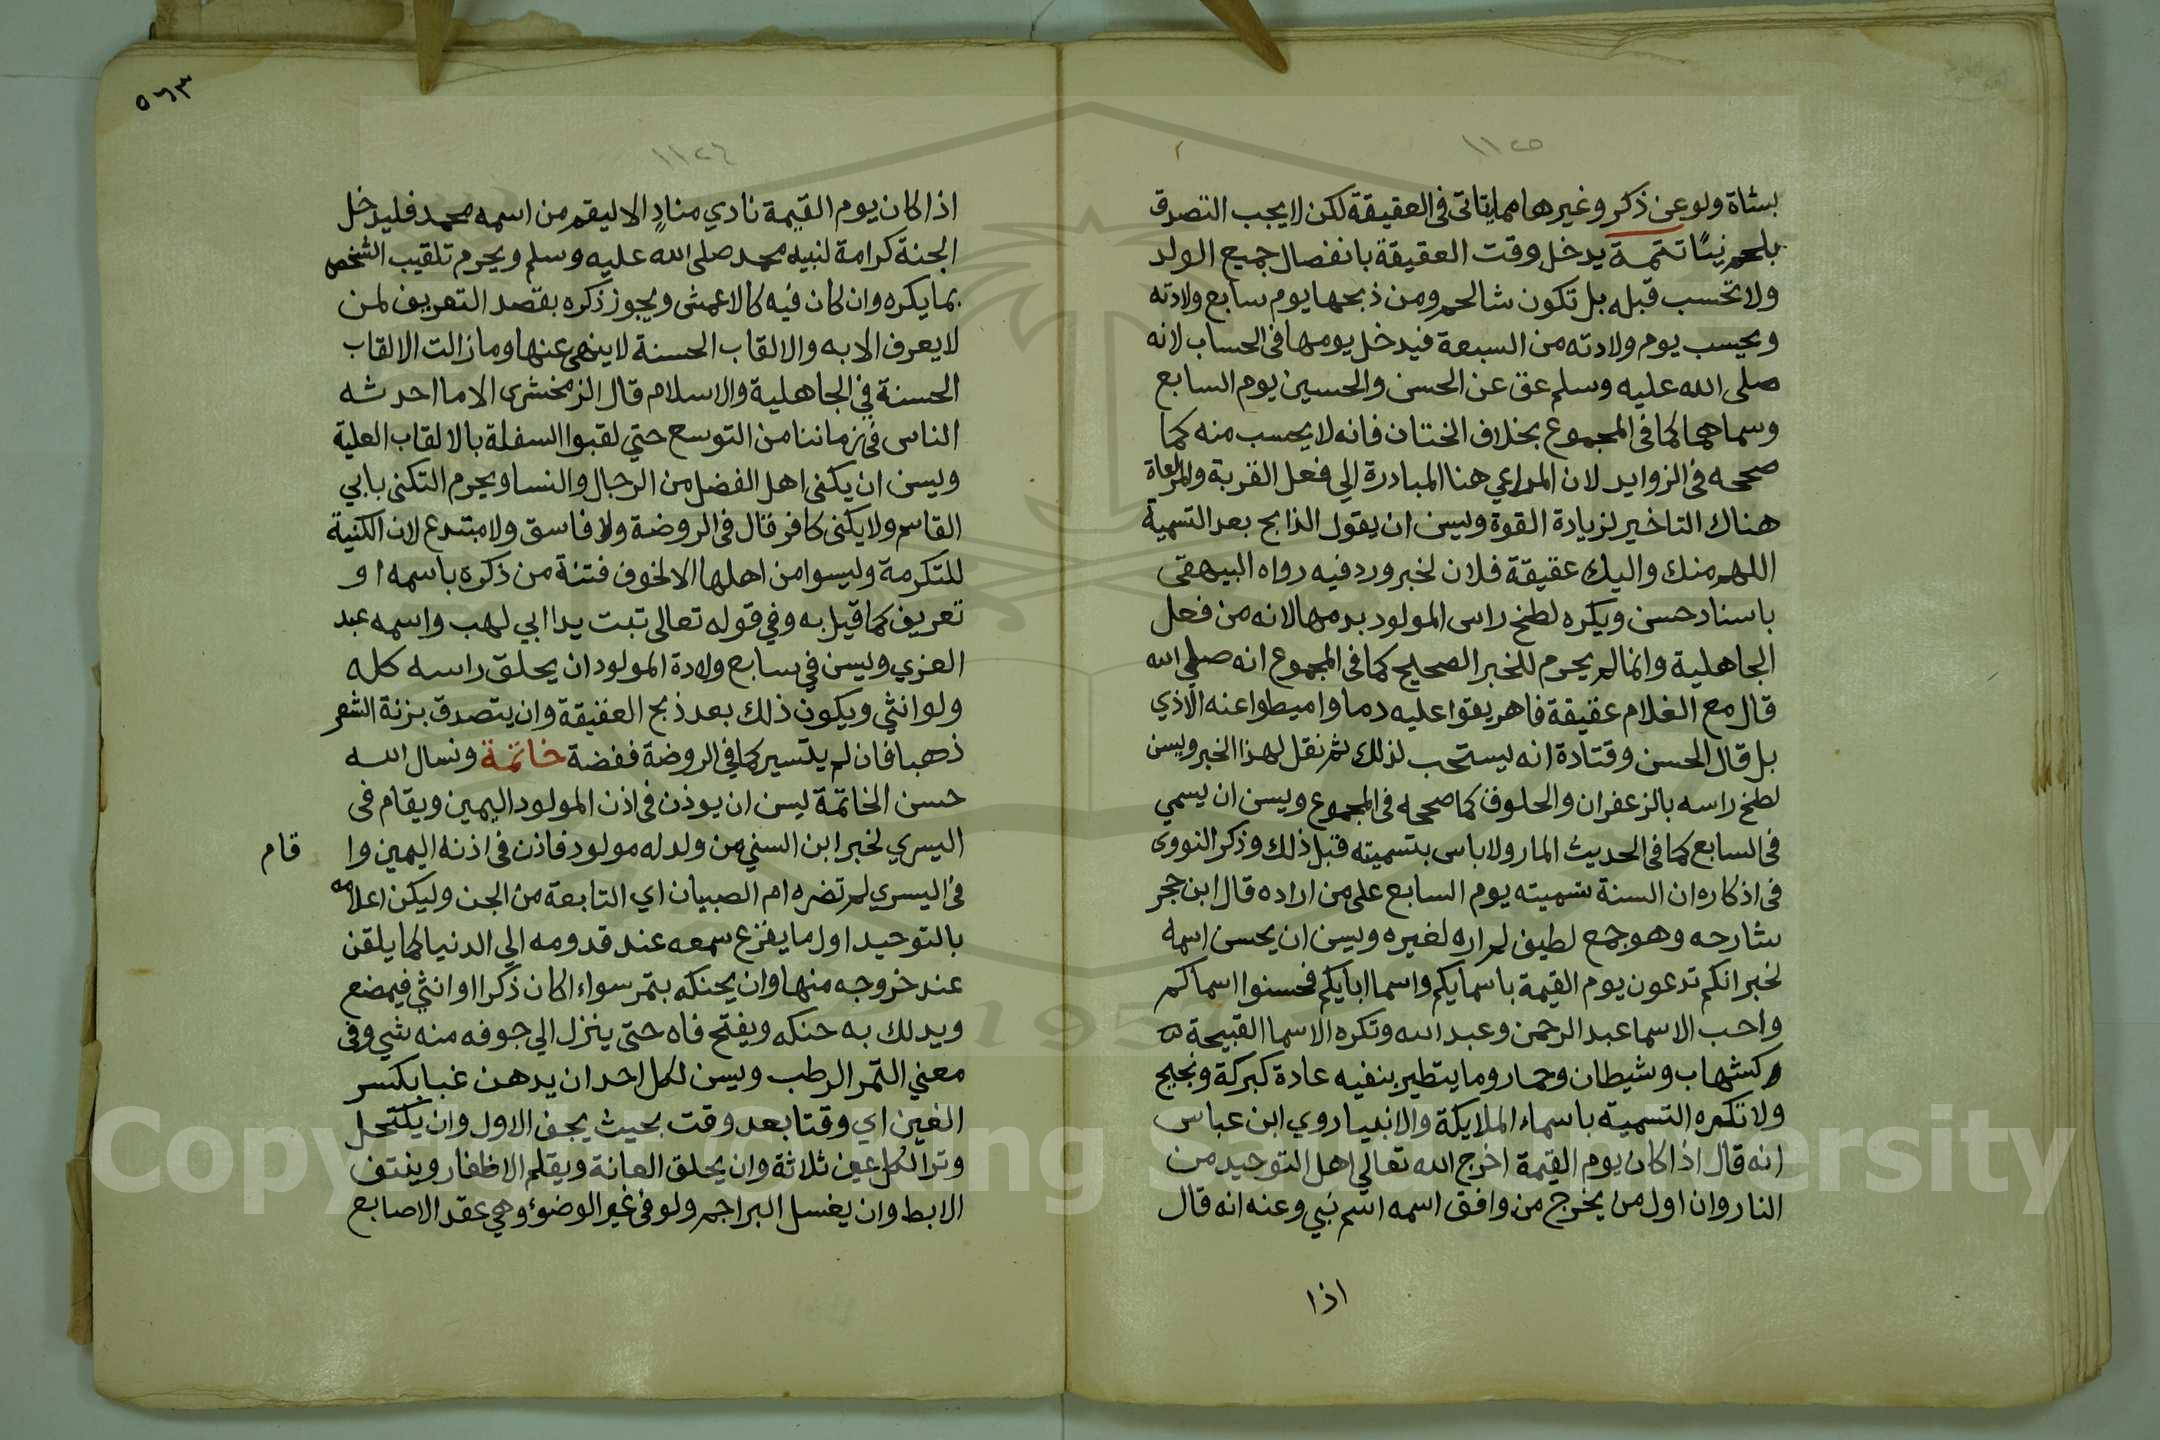 ١١٢٥
بشاة ولو عن ذكر وغيرها مما يتاتى فى العقيقة لكن لا يجب التصدق
بلحم نيئا تتمة يدخل وقت العقيقة بانفصال جميع الولد
ولا تحسب قبله بل تكون شالحم ومن ذبحها يوم سابع ولادته
ويحسب يوم ولادته من السبعة فيدخل يومها فى الحساب لانه
صلى الله عليه وسلم عق عن الحسن والحسين يوم السابع
وسماهما كما فى المجموع بخلاف الختان فانه لا يحسب منه كما
صححه فى الزوايد لان المراعي هنا المبادرة الي فعل القربة والمراعاة
هناك التاخير لزيادة القوة ويسن ان يقول الذابح بعد التسمية
اللهم منك واليك عقيقة فلان لخبر ورد فيه رواه البيهقى
باسناد حسن ويكره لطخ راس المولود بدمها لانه من فعل
الجاهلية وانما لم يحرم للخبر الصحيح كما فى المجموع انه صلي الله
قال مع الغلام عقيقة فاهريقوا عليه دما واميطوا عنه الاذي
بل قال الحسن وقتادة انه يستحب لذلك ثم نقل لهذا الخبر ويسن
لطخ راسه بالزعفران والحلوق كما صححه فى المجموع ويسن ان يسمي
فى السابع كما فى الحديث المار ولا باس بتسميته قبل ذلك وذكر النووى
فى اذكاره ان السنة تسميته يوم السابع على من اراده قال ابن حجر
شارحه وهو جمع لطيف لم اره لغيره ويسن ان يحسن اسمه
لخبر انكم تدعون يوم القيمة باسمايكم واسما ابايكم فحسنوا اسماكم
واحب الاسما عبد الرحمن وعبد الله وتكره الاسما القبيحة
كشهاب وشيطان وحمار وما يتطير بنفيه عادة كبركة ونجيح
ولا تكره التسمية باسماء الملايكة والانبيا روي ابن عباس
انه قال اذا كان يوم القيمة اخرج الله تعالي اهل التوحيد من
النار وان اول من يخرج من وافق اسمه اسم نبي وعنه انه قال
اذا
٥٦٣
١١٢٦
اذا كان يوم القيمة نادي مناد الا ليقم من اسمه محمد فليدخل
الجنة كرامة لنبيه محمد صلى الله عليه وسلم ويحرم تلقيب الشخص
بما يكره وان كان فيه كالاعمش ويجوز ذكره بقصد التعريف لمن
لا يعرف الا به والالقاب الحسنة لا ينهى عنها وما زالت الالقاب
الحسنة في الجاهلية والاسلام قال الزمخشرى الا ما احدثه
الناس فى زماننا من التوسع حتي لقبوا السفلة بالالقاب العلية
ويسن ان يكنى اهل الفضل من الرجال والنسا ويحرم التكنى بابي
القاسم ولا يكنى كافر قال فى الروضة ولا فاسق ولا مبتدع لان الكنية
للتكرمة وليسوا من اهلها الا لخوف فتنة من ذكره باسمه او
تعريف كما قيل به وفي قوله تعالى تبت يدا ابي لهب واسمه عبد
العزي ويسن في سابع ولادة المولود ان يحلق راسه كله
ولو انثي ويكون ذلك بعد ذبح العقيقة وان يتصدق بزنة الشعر
ذهبا فان لم يتيسر كما في الروضة ففضة خاتمة ونسال الله
حسن الخاتمة يسن ان يوذن فى اذن المولود اليمين ويقام فى
اليسري لخبر ابن السني من ولد له مولود فاذن فى اذنه اليمين وا
قام
فى اليسري لم تضره ام الصبيان اي التابعة من الجن وليكن اعلامه
بالتوحيد اول ما يقرع سمعه عند قدومه الي الدنيا كما يلقن
عند خروجه منها وان يحنكه بتمر سواء اكان ذكرا او انثي فيمضع
ويدلك به حنكه ويفتح فاه حتى ينزل الي جوفه منه شي وفى
معني التمر الرطب ويسن لكل احد ان يدهن غبا بكسر
الغين اي وقتا بعد وقت بحيث يجف الاول وان يكتحل
وترا لكل عين ثلاثة وان يحلق العانة ويقلم الاظفار وينتف
الابط وان يغسل البراجم ولو فى غير الوضوء وهي عقد الاصابع
1957
Copyright © King Saud University